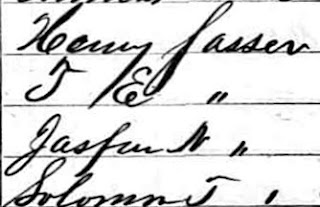 Henry Gasser
T E "
Jasper N "
Solomon T "